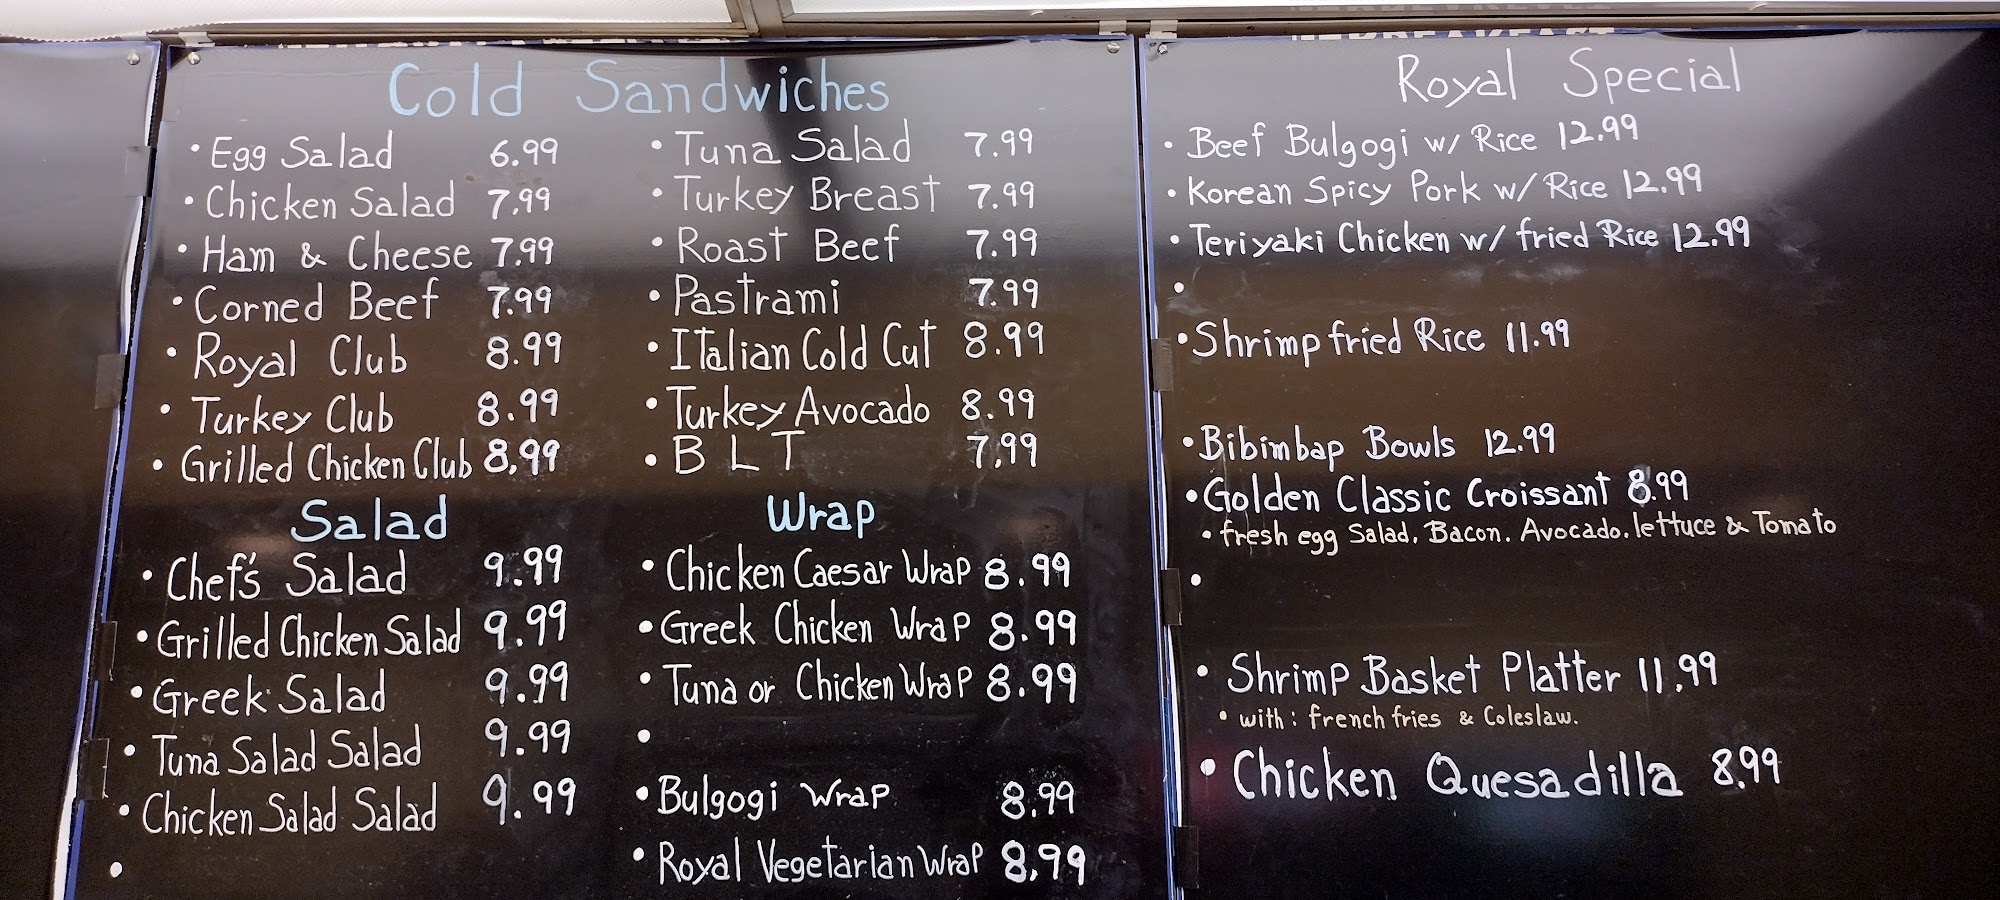 Cold Sandwiches
• Egg Salad 6.99
• Chicken Salad 7.99
• Ham & Cheese 7.99
• Corned Beef 7.99
• Royal Club 8.99
• Turkey Club 8.99
• Grilled Chicken Club 8.99
• Tuna Salad 7.99
• Turkey Breast 7.99
• Roast Beef 7.99
• Pastrami 7.99
• Italian Cold Cut 8.99
• Turkey Avocado 8.99
• B L T 7.99
Salad
• Chef's Salad 9.99
• Grilled Chicken Salad 9.99
• Greek Salad 9.99
• Tuna Salad Salad 9.99
• Chicken Salad Salad 9.99
•
Wrap
• Chicken Caesar Wrap 8.99
• Greek Chicken Wrap 8.99
• Tuna or Chicken Wrap 8.99
•
• Bulgogi Wrap 8.99
• Royal Vegetarian Wrap 8.99
Royal Special
• Beef Bulgogi w/ Rice 12.99
• Korean Spicy Pork w/ Rice 12.99
• Teriyaki Chicken w/ fried Rice 12.99
•
• Shrimp fried Rice 11.99
• Bibimbap Bowls 12.99
• Golden Classic Croissant 8.99
• fresh egg Salad. Bacon. Avocado. lettuce & Tomato
•
• Shrimp Basket Platter 11.99
• with: french fries & Coleslaw.
• Chicken Quesadilla 8.99